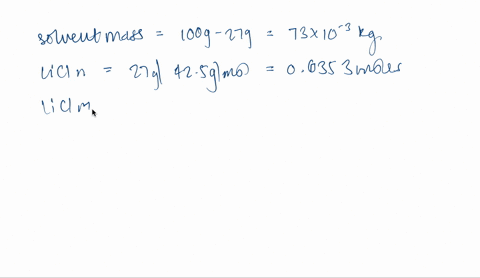 solvent mass = 100g - 27g = 73 × 10⁻³ kg
LiCl n = 27g ( 42.5g|mol) = 0.6353 moles
LiCl m